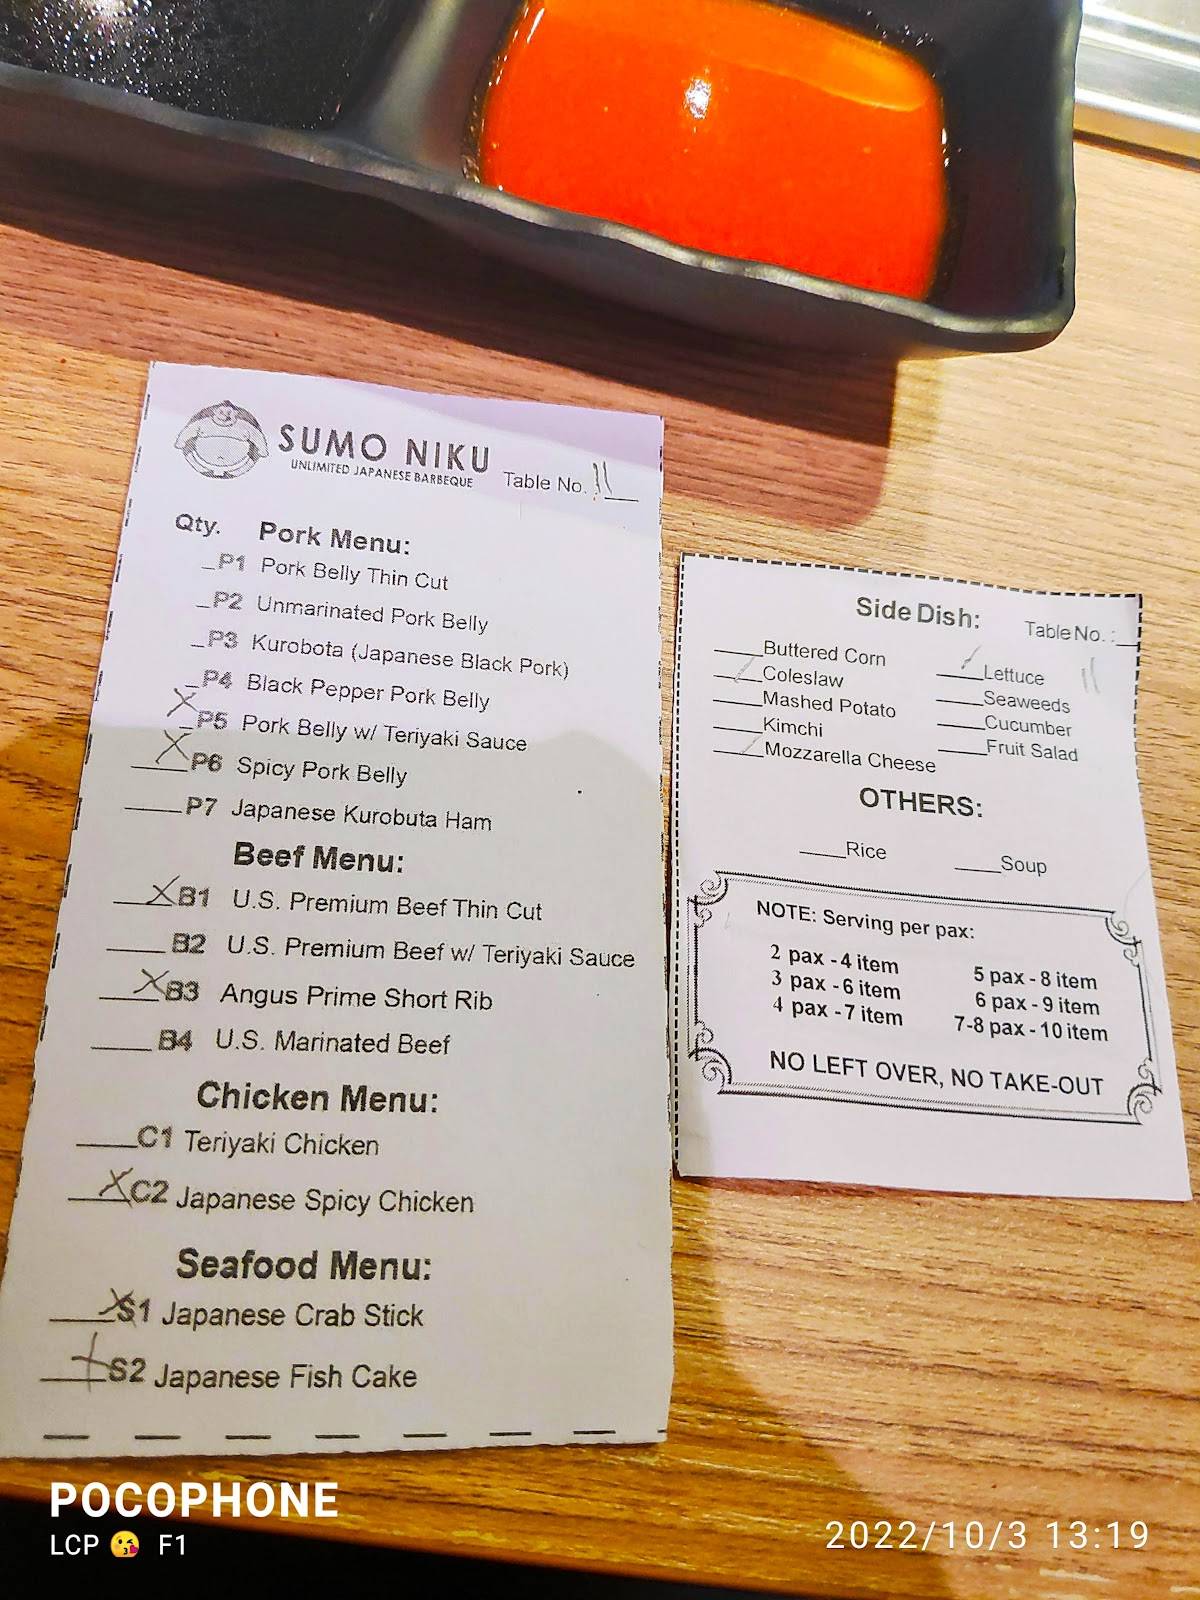 SUMO NIKU
UNLIMITED JAPANESE BARBEQUE
Table No. 11
Qty. Pork Menu:
_P1 Pork Belly Thin Cut
_P2 Unmarinated Pork Belly
_P3 Kurobota (Japanese Black Pork)
_P4 Black Pepper Pork Belly
X P5 Pork Belly w/ Teriyaki Sauce
X P6 Spicy Pork Belly
___P7 Japanese Kurobuta Ham
Beef Menu:
X B1 U.S. Premium Beef Thin Cut
___B2 U.S. Premium Beef w/ Teriyaki Sauce
X B3 Angus Prime Short Rib
___B4 U.S. Marinated Beef
Chicken Menu:
___C1 Teriyaki Chicken
X C2 Japanese Spicy Chicken
Seafood Menu:
X S1 Japanese Crab Stick
X S2 Japanese Fish Cake
Side Dish:
Table No. : 11
___Buttered Corn
___Coleslaw
___Mashed Potato
___Kimchi
___Mozzarella Cheese
___Lettuce
___Seaweeds
___Cucumber
___Fruit Salad
OTHERS:
___Rice ___Soup
NOTE: Serving per pax:
2 pax - 4 item
3 pax - 6 item
4 pax - 7 item
5 pax - 8 item
6 pax - 9 item
7-8 pax - 10 item
NO LEFT OVER, NO TAKE-OUT
POCOPHONE
LCP 😘 F1
2022/10/3 13:19